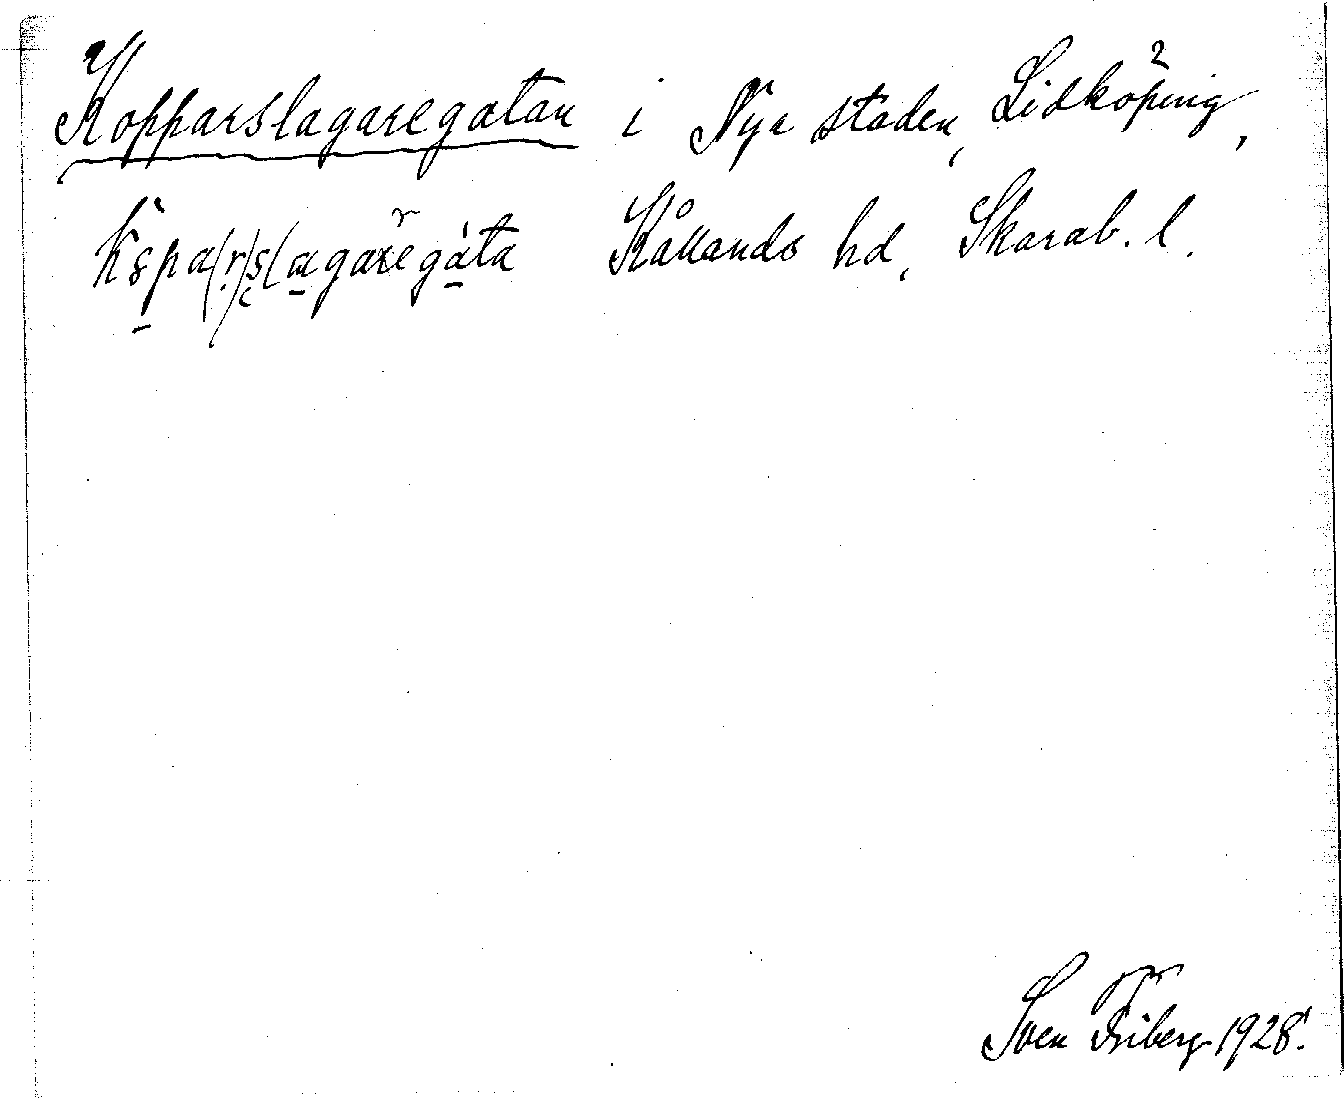 Kopparslagaregatan i Nya staden, Lidköping,
Kållands hd, Skarab. l.
Sven Friberg 1928.